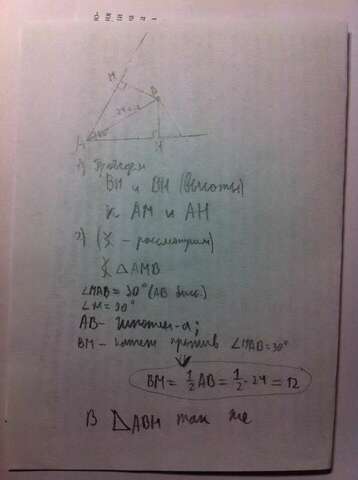 M
B
24
A
H
1) Проведём
BM и BH (высоты)
к AM и AH
2) (
- рассмотрим)
△AMB
∠MAB = 30° (AB бисс.)
AB - гипотен-а;
BM - катет против ∠MAB=30°
BM = 1/2 AB = 1/2 · 24 = 12
В △ABH так же